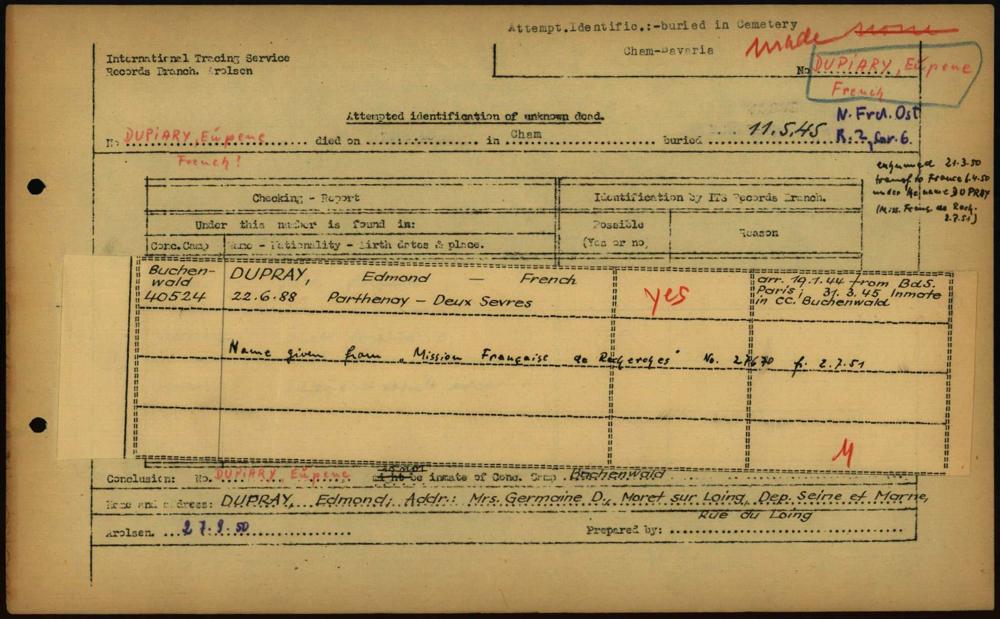 Attempt.Identific.:-buried in Cemetery
Cham-Bavaria
made
International Tracing Service
Records Branch. Arolsen
No DUPIARY, Eupene
French
Attempted identification of unknown dead.
N. Frd. Ost
R. 7, Gar. 6.
No DUPIARY, Eupene died on in Cham buried 11.5.45
French!
exhumed 21.3.50
transf to France 6.4.50
under the name DUPRAY
(Miss. Franç. de Rech.
2.7.51)
Checking - Report
Identification by ITS Records Branch.
Under this number is found in:
Possible
(Yes or no)
Reason
Conc.Camp
Name - Nationality - birth dates & place.
Buchen-
wald
40524
DUPRAY, Edmond — French
22.6.88 Parthenay – Deux Sevres
yes
arr. 19.1.44 from BdS.
Paris; 31.3.45 Inmate
in CC. Buchenwald
Name given from "Mission Française de Recherches" No. 27670 fr. 2.7.51
Conclusion: No. DUPIARY, Eupene might be inmate of Conc. Camp Buchenwald
Name and address: DUPRAY, Edmond; Addr.: Mrs. Germaine D., Moret sur Loing, Dep. Seine et Marne,
Rue du Loing
Arolsen. 27.9.50 Prepared by: